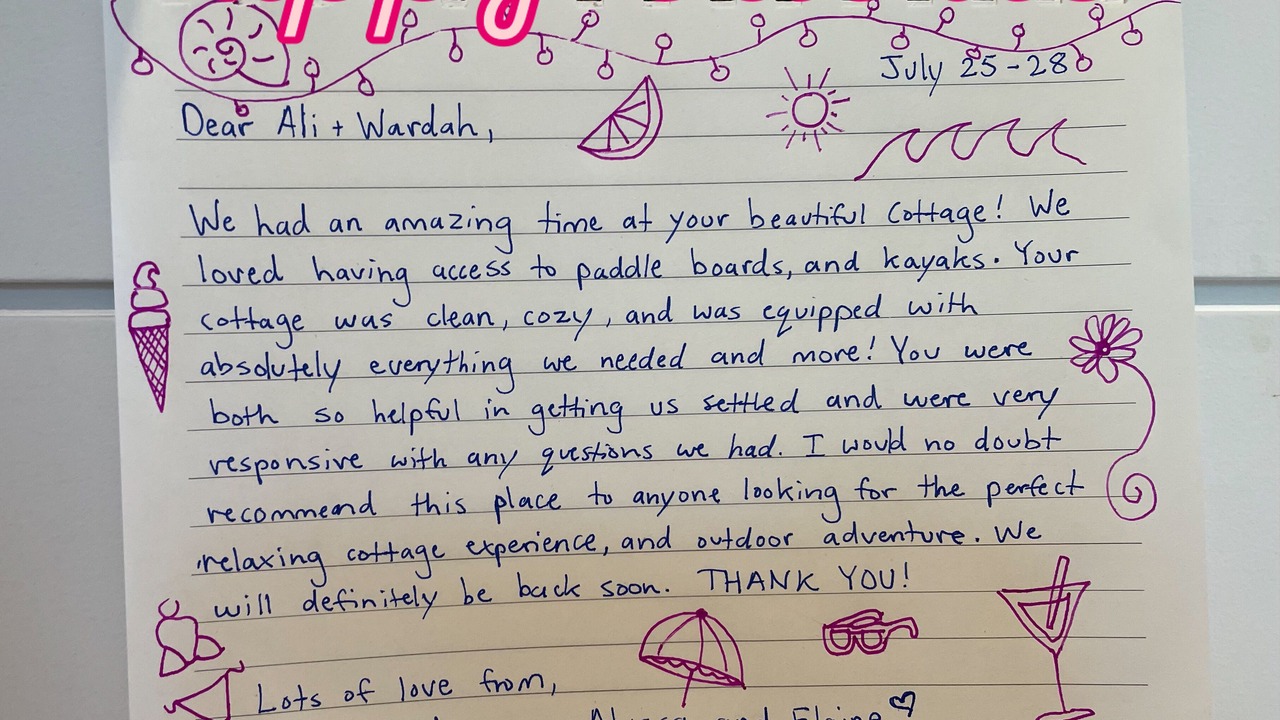 July 25-28
Dear Ali + Wardah,
We had an amazing time at your beautiful Cottage! We
loved having access to paddle boards, and kayaks. Your
cottage was clean, cozy, and was equipped with
absolutely everything we needed and more! You were
both so helpful in getting us settled and were very
responsive with any questions we had. I would no doubt
recommend this place to anyone looking for the perfect
relaxing cottage experience, and outdoor adventure. We
will definitely be back soon. THANK YOU!
Lots of love from,
and Elaine